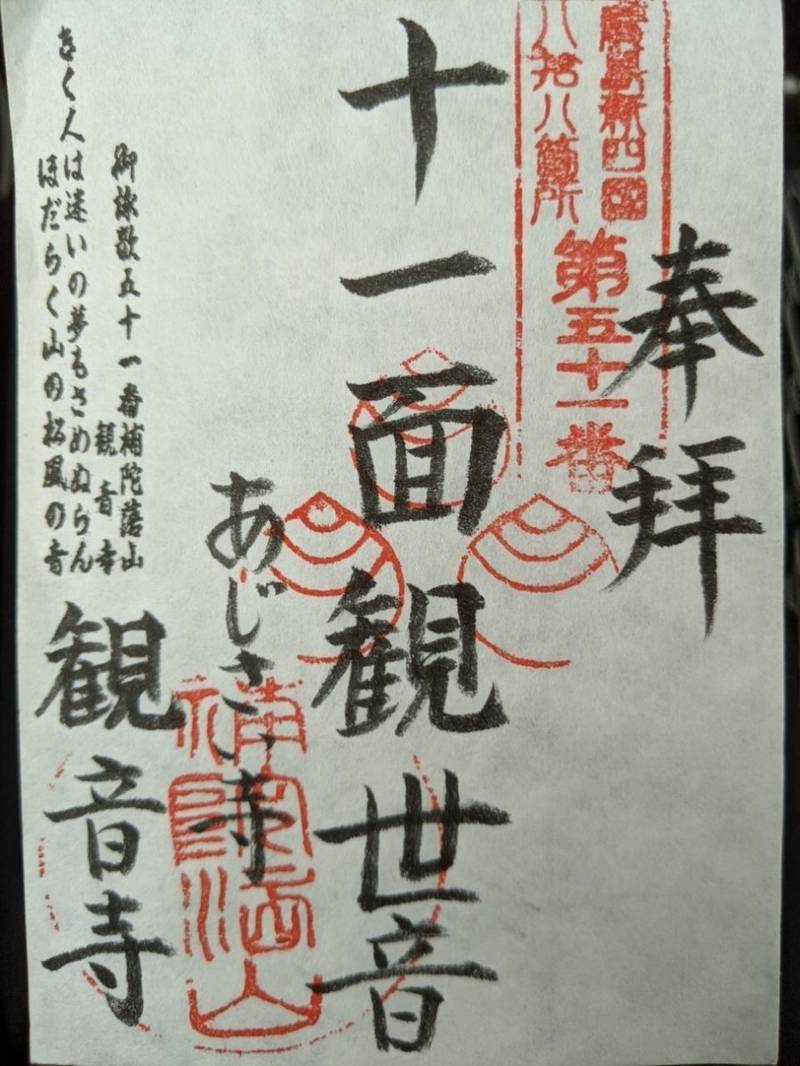 奉拝
廣島新四國
八拾八箇所
第五十一番
十一面観世音
あじさい寺
補陀落山
観音寺
御詠歌五十一番補陀落山
観音寺
きく人は迷いの夢もさめぬらん
ほだらく山の松風の音